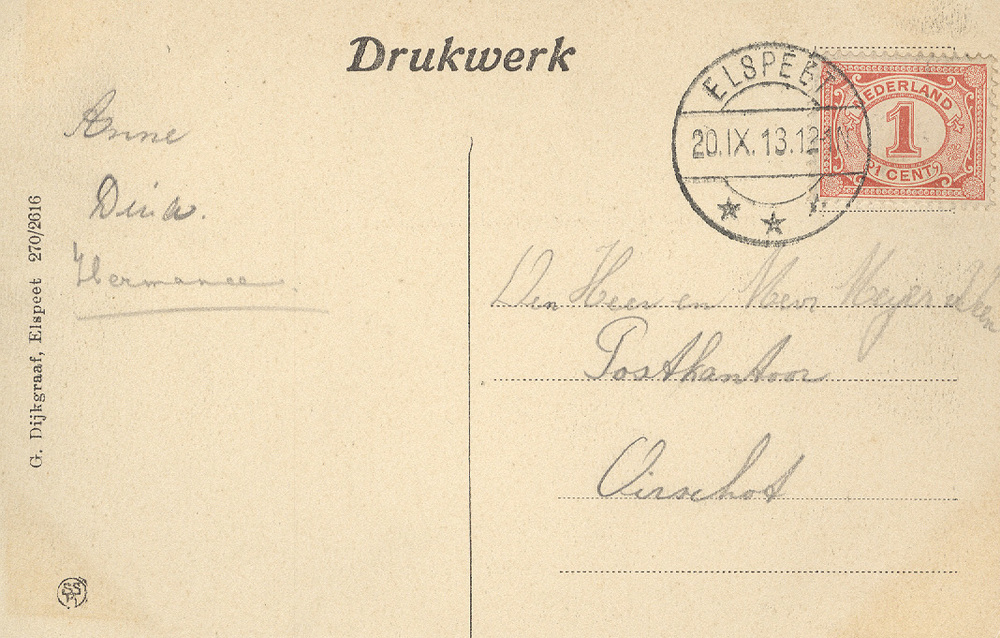 Drukwerk
ELSPEET
20.IX.13.12-1N
NEDERLAND
1
(1 CENT)
Anne
Dirk.
Hermance
Den Heer en Mevr Meyer
Postkantoor
Oirschot
G. Dijkgraaf, Elspeet 270/2616